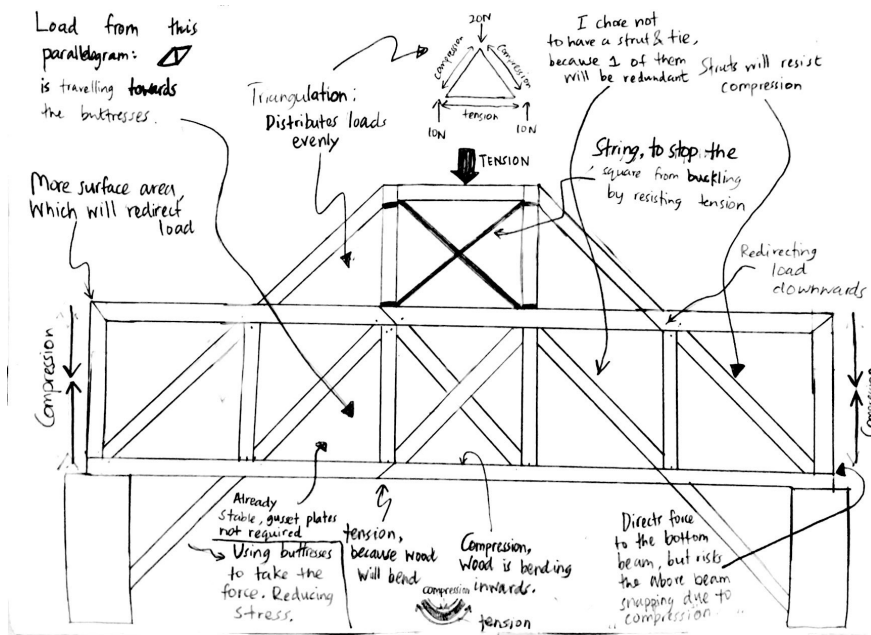 Load from this
parallelogram:
is travelling towards
the buttresses.
More surface area,
Which will redirect
load
Triangulation:
Distributes loads
evenly
20N
compression
compression
tension
10N
10N
TENSION
I chose not
to have a strut & tie,
because 1 of them
will be redundant
Struts will resist
compression
String, to stop the
square from buckling
by resisting tension
Redirecting
load
downwards
Compression
Compression
Already
stable, gusset plates
not required
Using buttresses
to take the
force. Reducing
stress.
tension,
because wood
will bend
Compression,
wood is bending
inwards.
compression
tension
Directs force
to the bottom
beam, but risks
the above beam
snapping due to
compression.